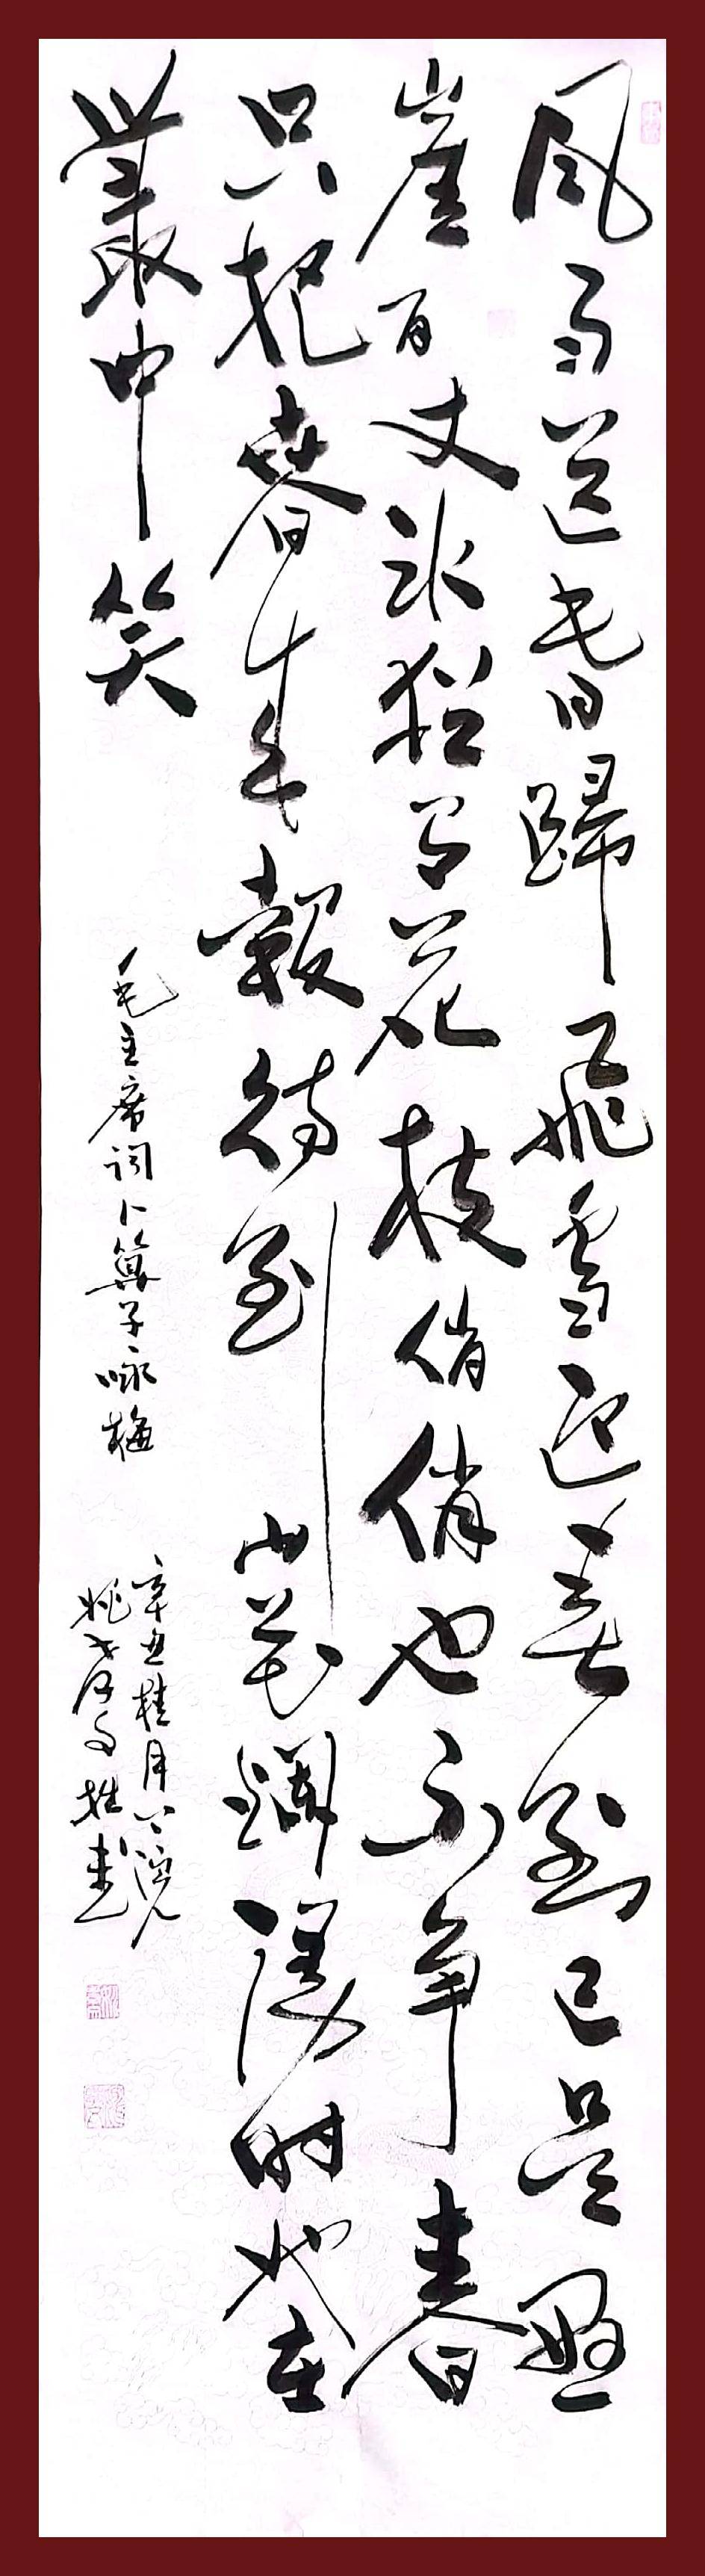 風雨送春歸飛雪迎春到已是懸
崖百丈冰猶有花枝俏俏也不争春
只把春来報待到山花爛漫時她在
叢中笑
毛主席词卜算子咏梅
辛丑桂月浣
姚書